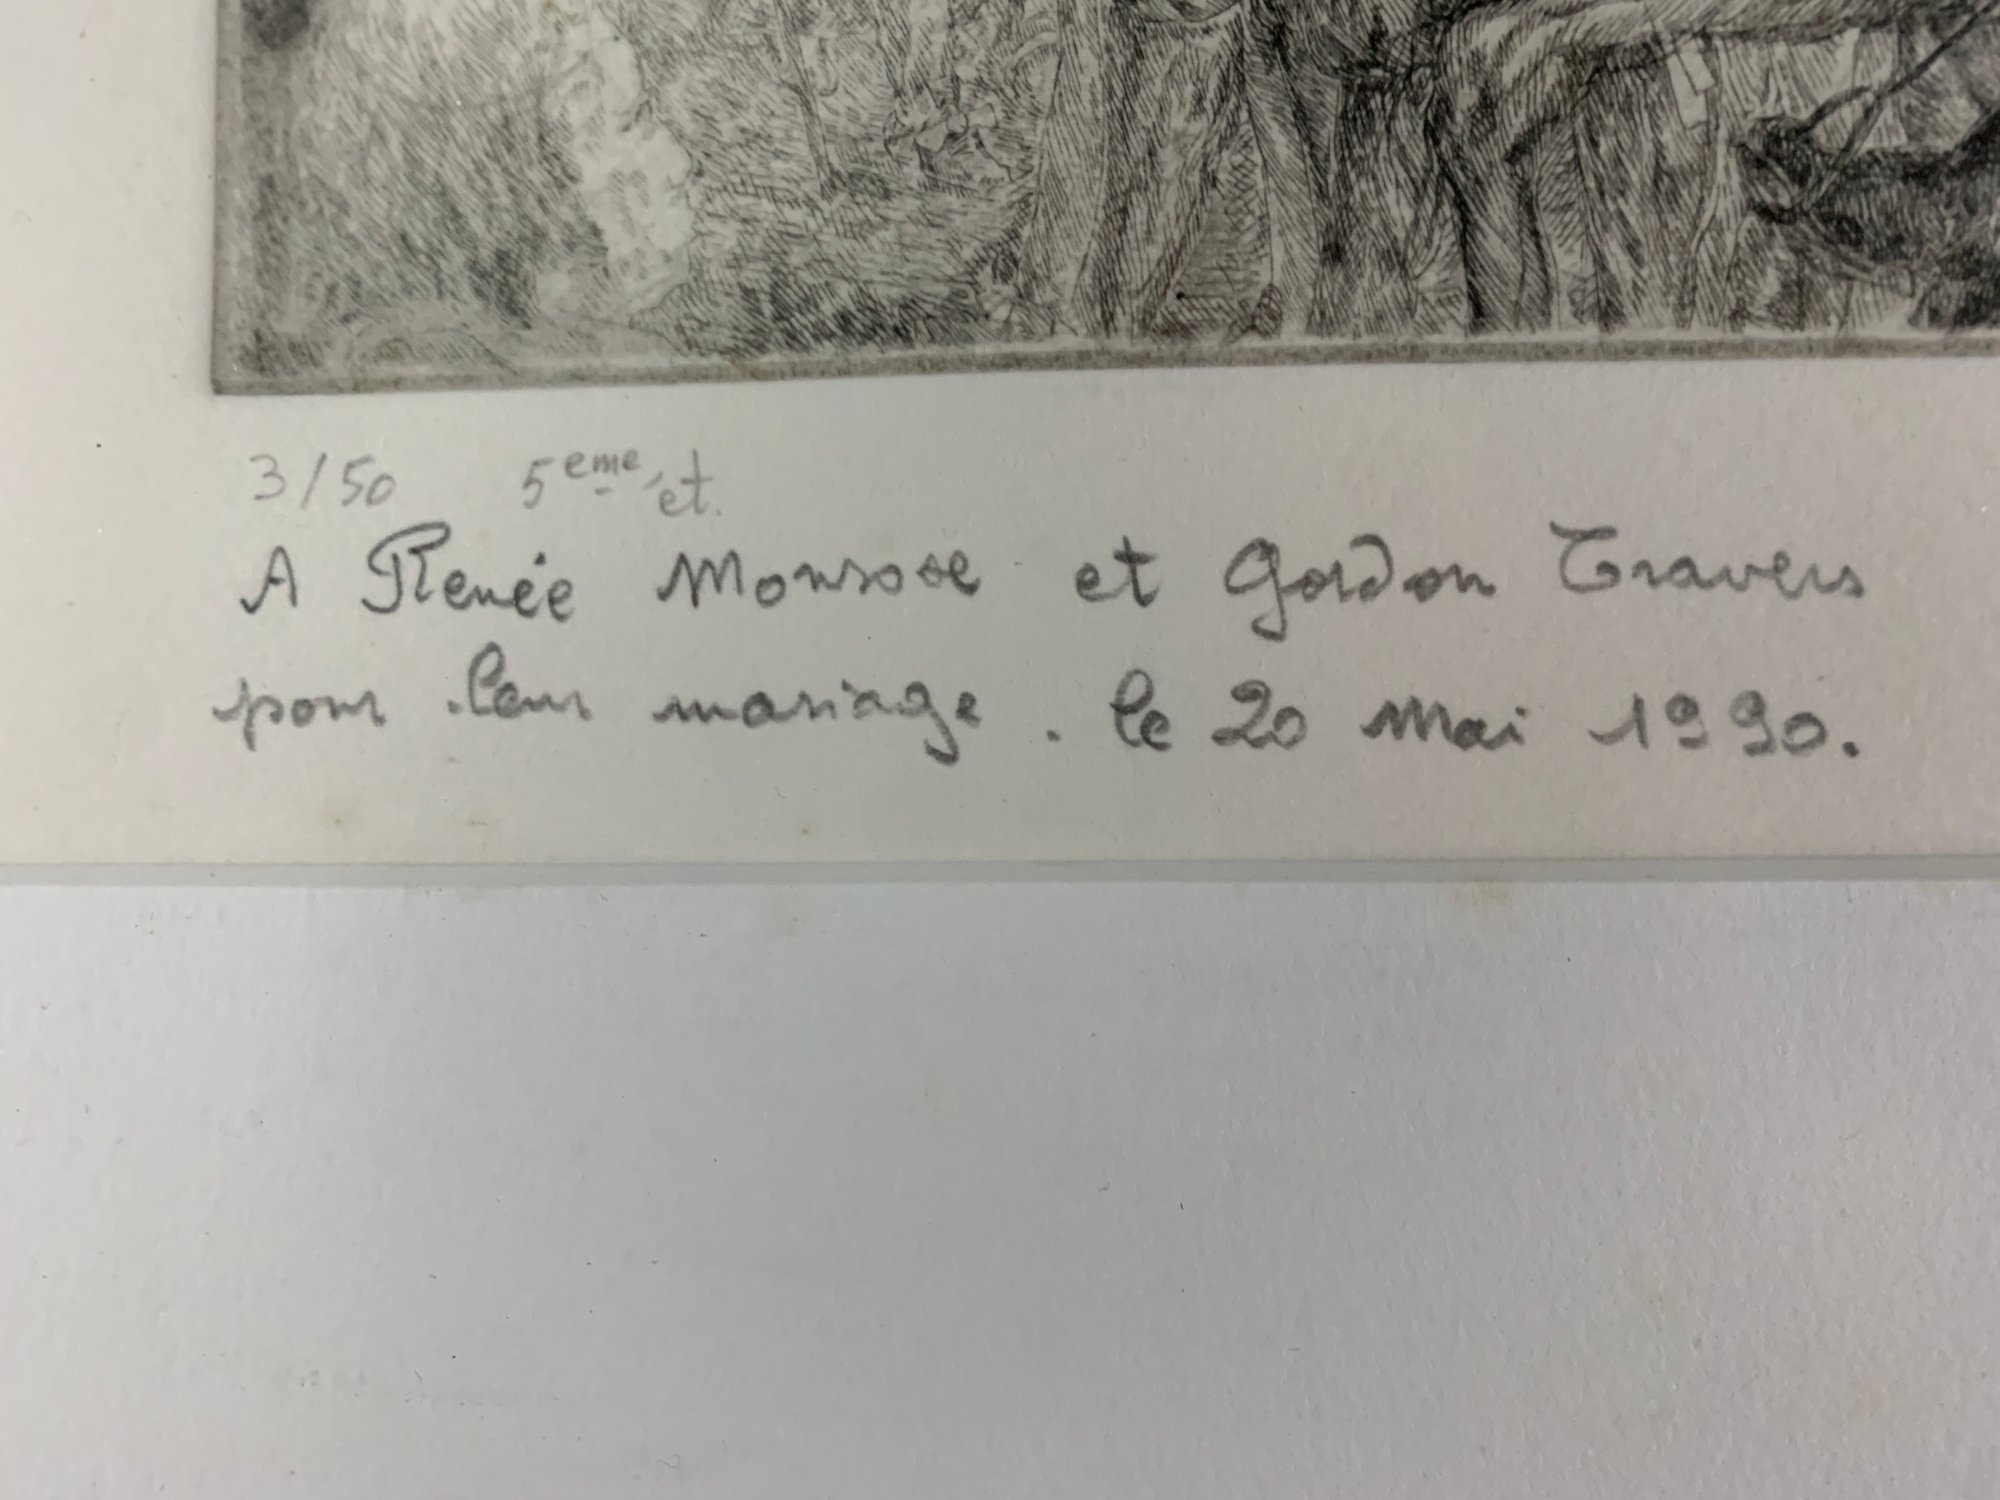 3/50 5eme ét.
A Renée Monroe et Gordon Travers
pour leur mariage. le 20 Mai 1990.